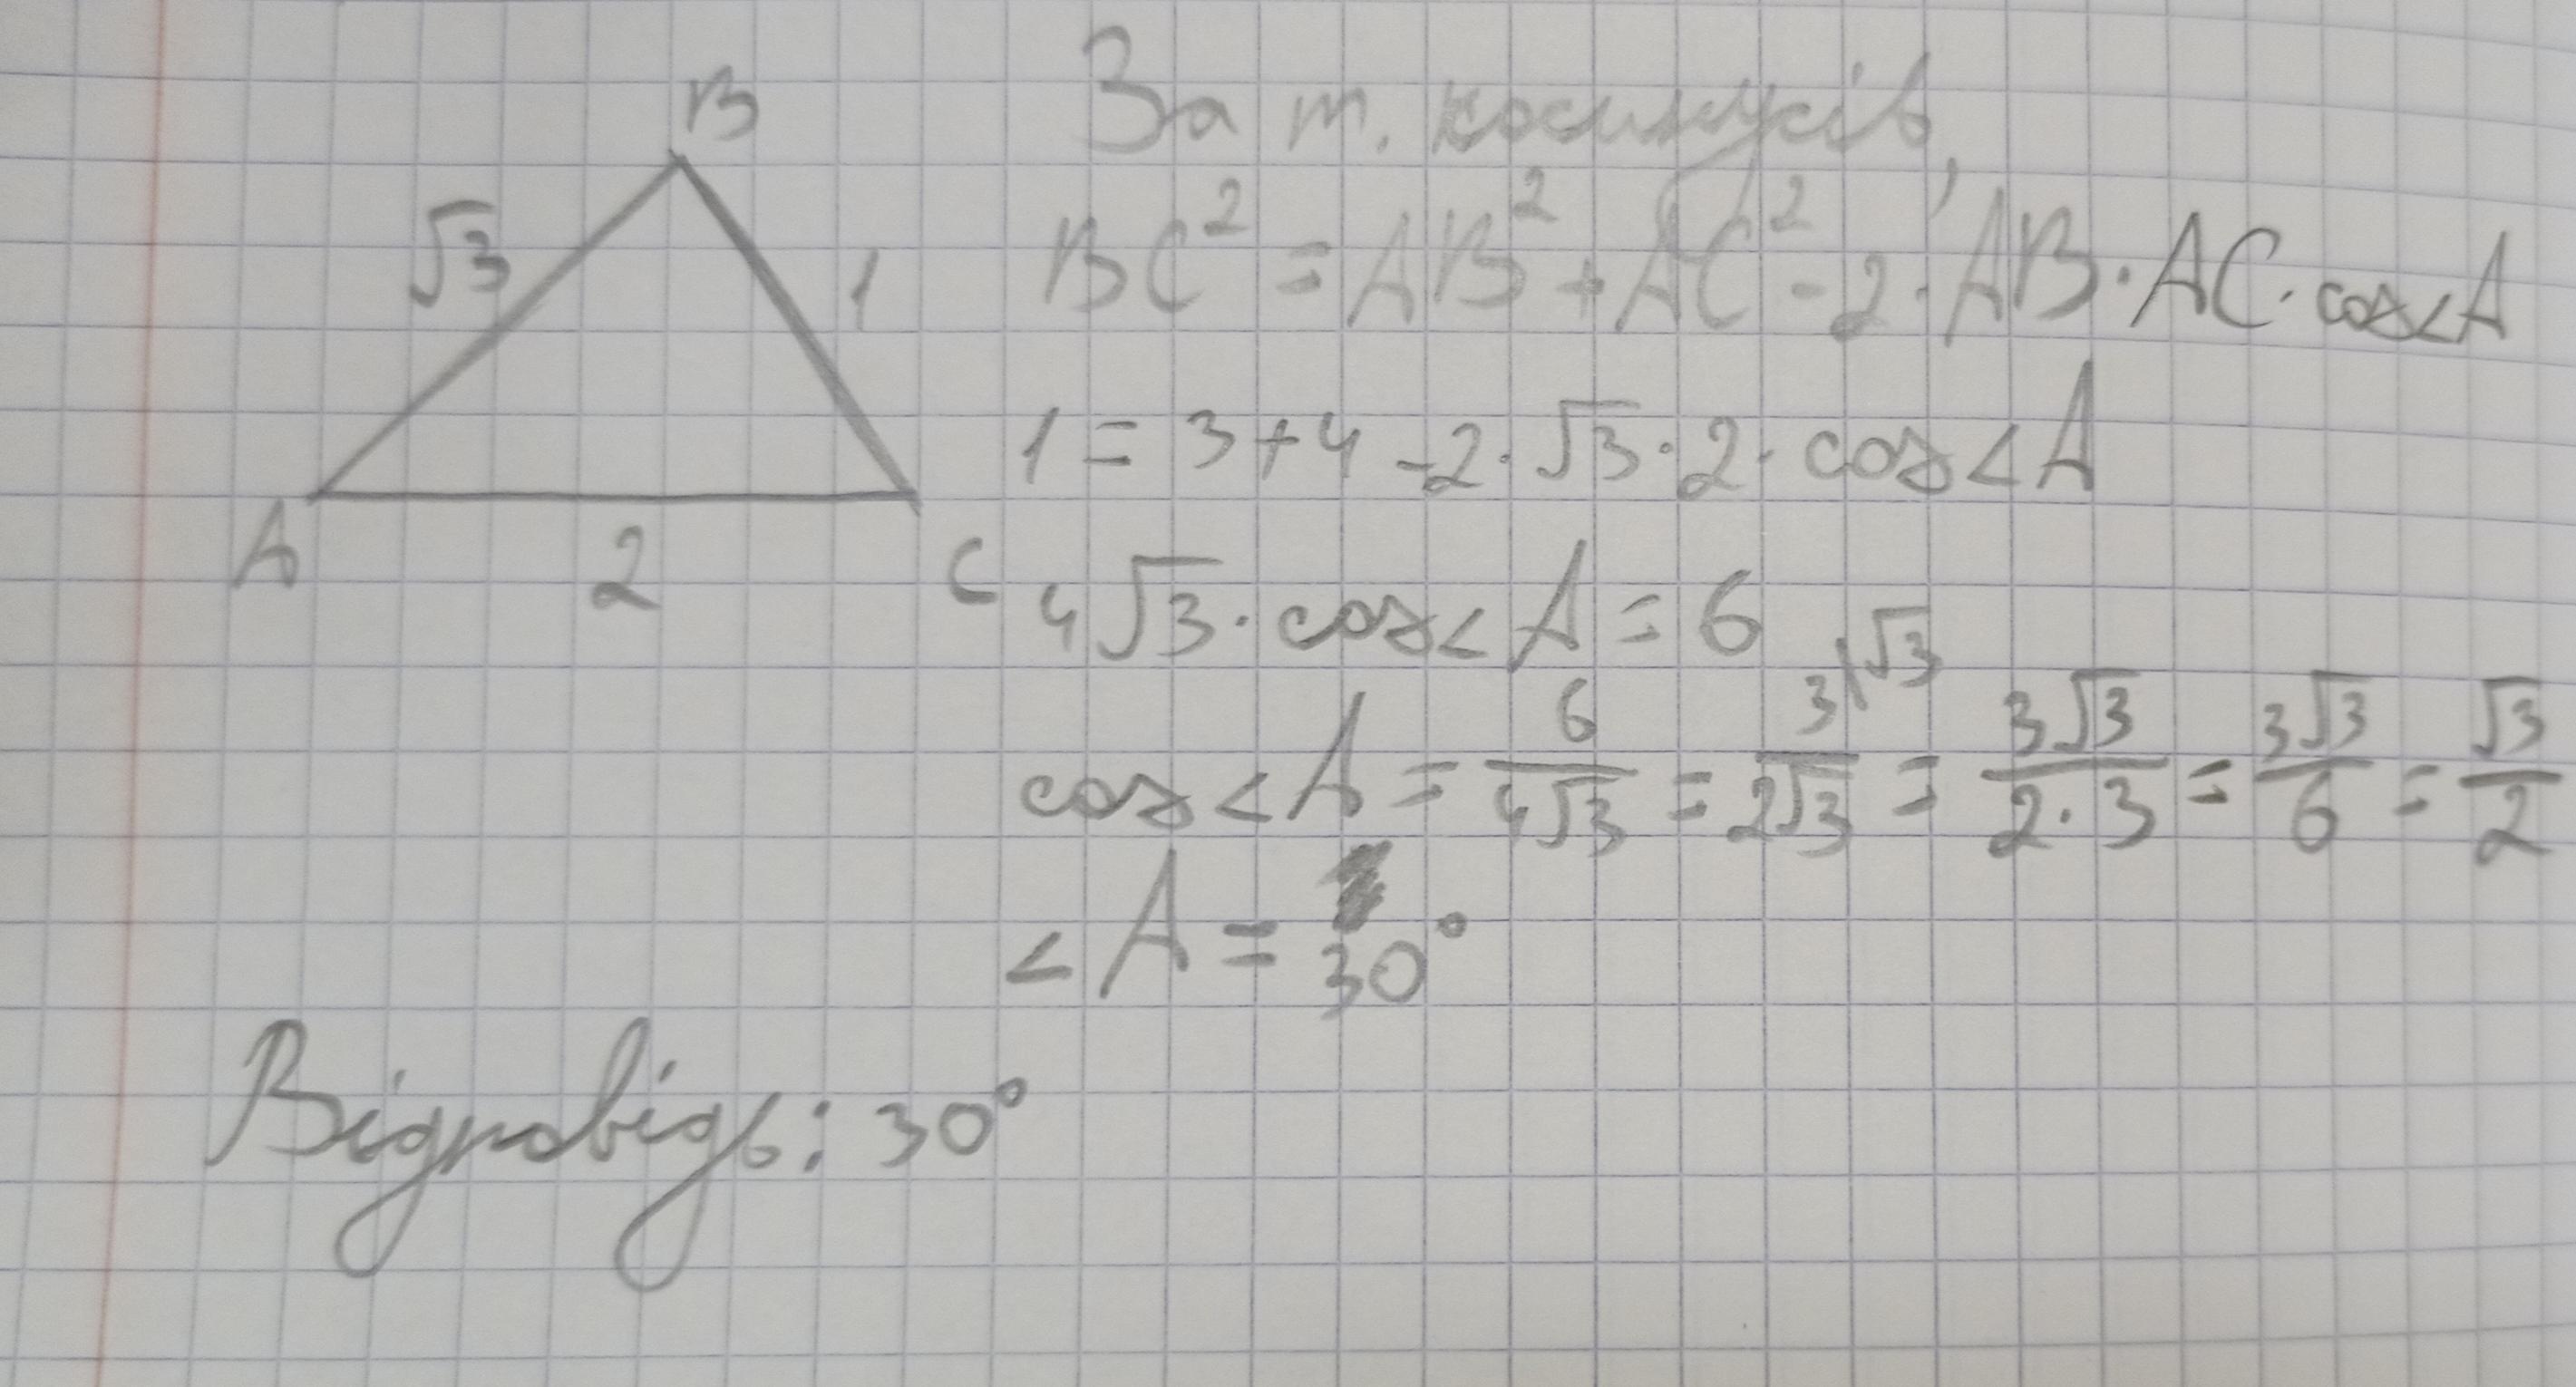 B
√3
1
A
2
C
За т. косинусів,
BC² = AB² + AC² - 2 · AB · AC · cos<A
1 = 3 + 4 - 2 · √3 · 2 · cos<A
4√3 · cos<A = 6
cos<A = 6/4√3 = 3\√3/2√3 = 3√3/2·3 = 3√3/6 = √3/2
<A = 30°
Відповідь: 30°